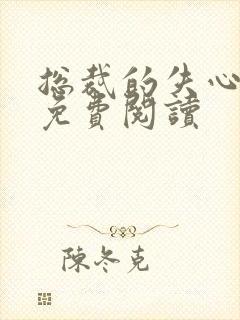 总裁的失心
免費閱讀
陳冬克